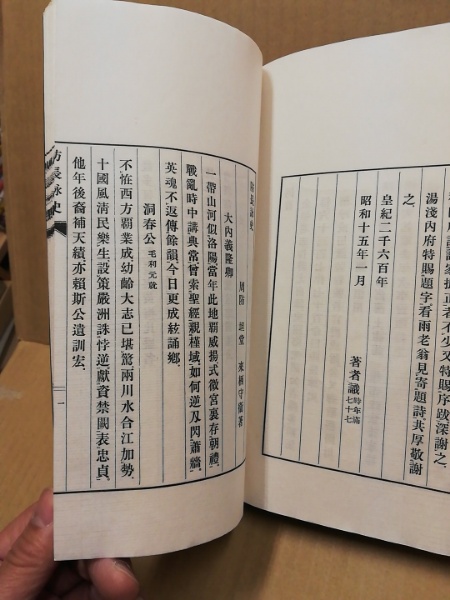 正者不少又特賜序跋深謝之
湯淺内府特賜題字看雨老翁見寄題詩共厚敬謝
之
皇紀二千六百年
昭和十五年一月
著者識 時年滿七十七
防長詠史
周防 來栖守衞著
大内義隆卿
一帶山河似洛陽當年此地覇威揚式微宮裏存朝禮
戰亂時中講典常曾索聖經親槿域如何逆及閃蕭牆
英魂不返傳餘韻今日更成絃誦鄉
洞春公 毛利元就
不怪西方覇業成幼齡大志已堪驚兩川水合江加勢
十國風淸民樂生設策嚴洲誅悖逆獻資禁闕表忠貞
他年後裔補天績亦賴斯公遺訓宏
防長詠史
一